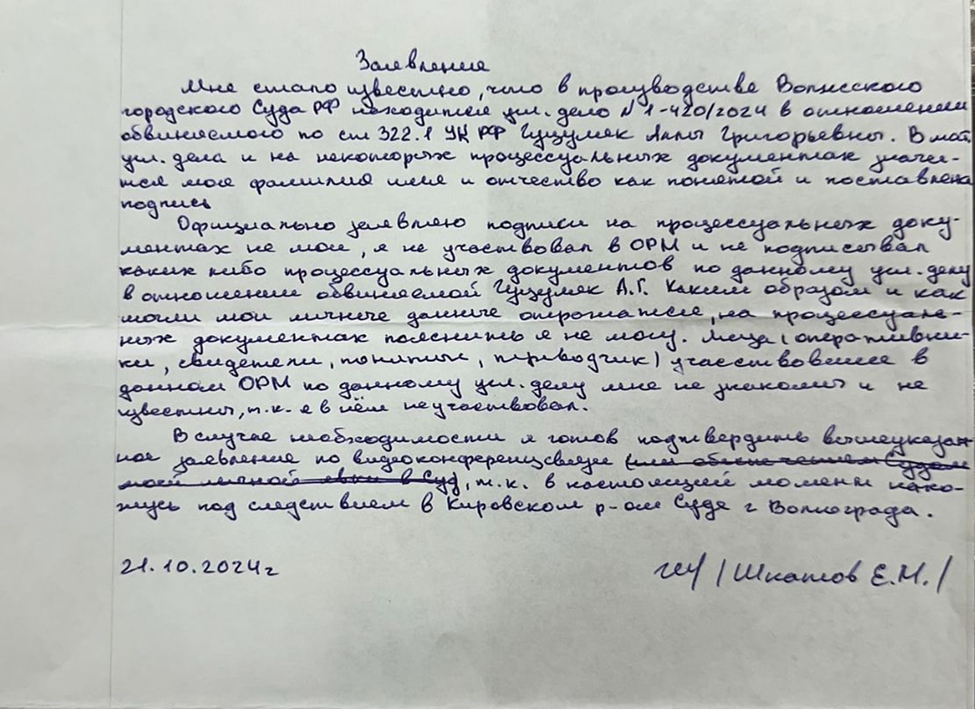 Заявление
Мне стало известно, что в производстве Волжского
городского Суда РФ находится уг. дело №1-420/2024 в отношении
обвиняемого по ст 322.1 УК РФ Гуцумяк Аллы Григорьевны. В мат.
уг. дела и на некоторых процессуальных документах значи-
тся моя фамилия имя и отчество как понятой и поставлена
подпись
Официально заявляю подписи на процессуальных доку-
ментах не мои, я не участвовал в ОРМ и не подписывал
каких либо процессуальных документов по данному уг. делу
в отношении обвиняемой Гуцумяк А.Г. Каким образом и как
могли мои личные данные отрозится, на процессуаль-
ных документах пояснить я не могу. Лица (оперативни-
ки, свидетели, понятые, переводчик) участвовшие в
данном ОРМ по данному уг. делу мне не знакомы и не
известны, т.к. я в нём не участвовал.
В случае необходимости я готов подтвердить вышеуказан-
ное заявление по видеоконференцсвязи (или обеспечением Судом
моей личной явки в Суд), т.к. в настоящий момент нахо-
жусь под следствием в Кировском р-ом Суде г Волгограда.
21.10.2024г /Шкатов Е.М./